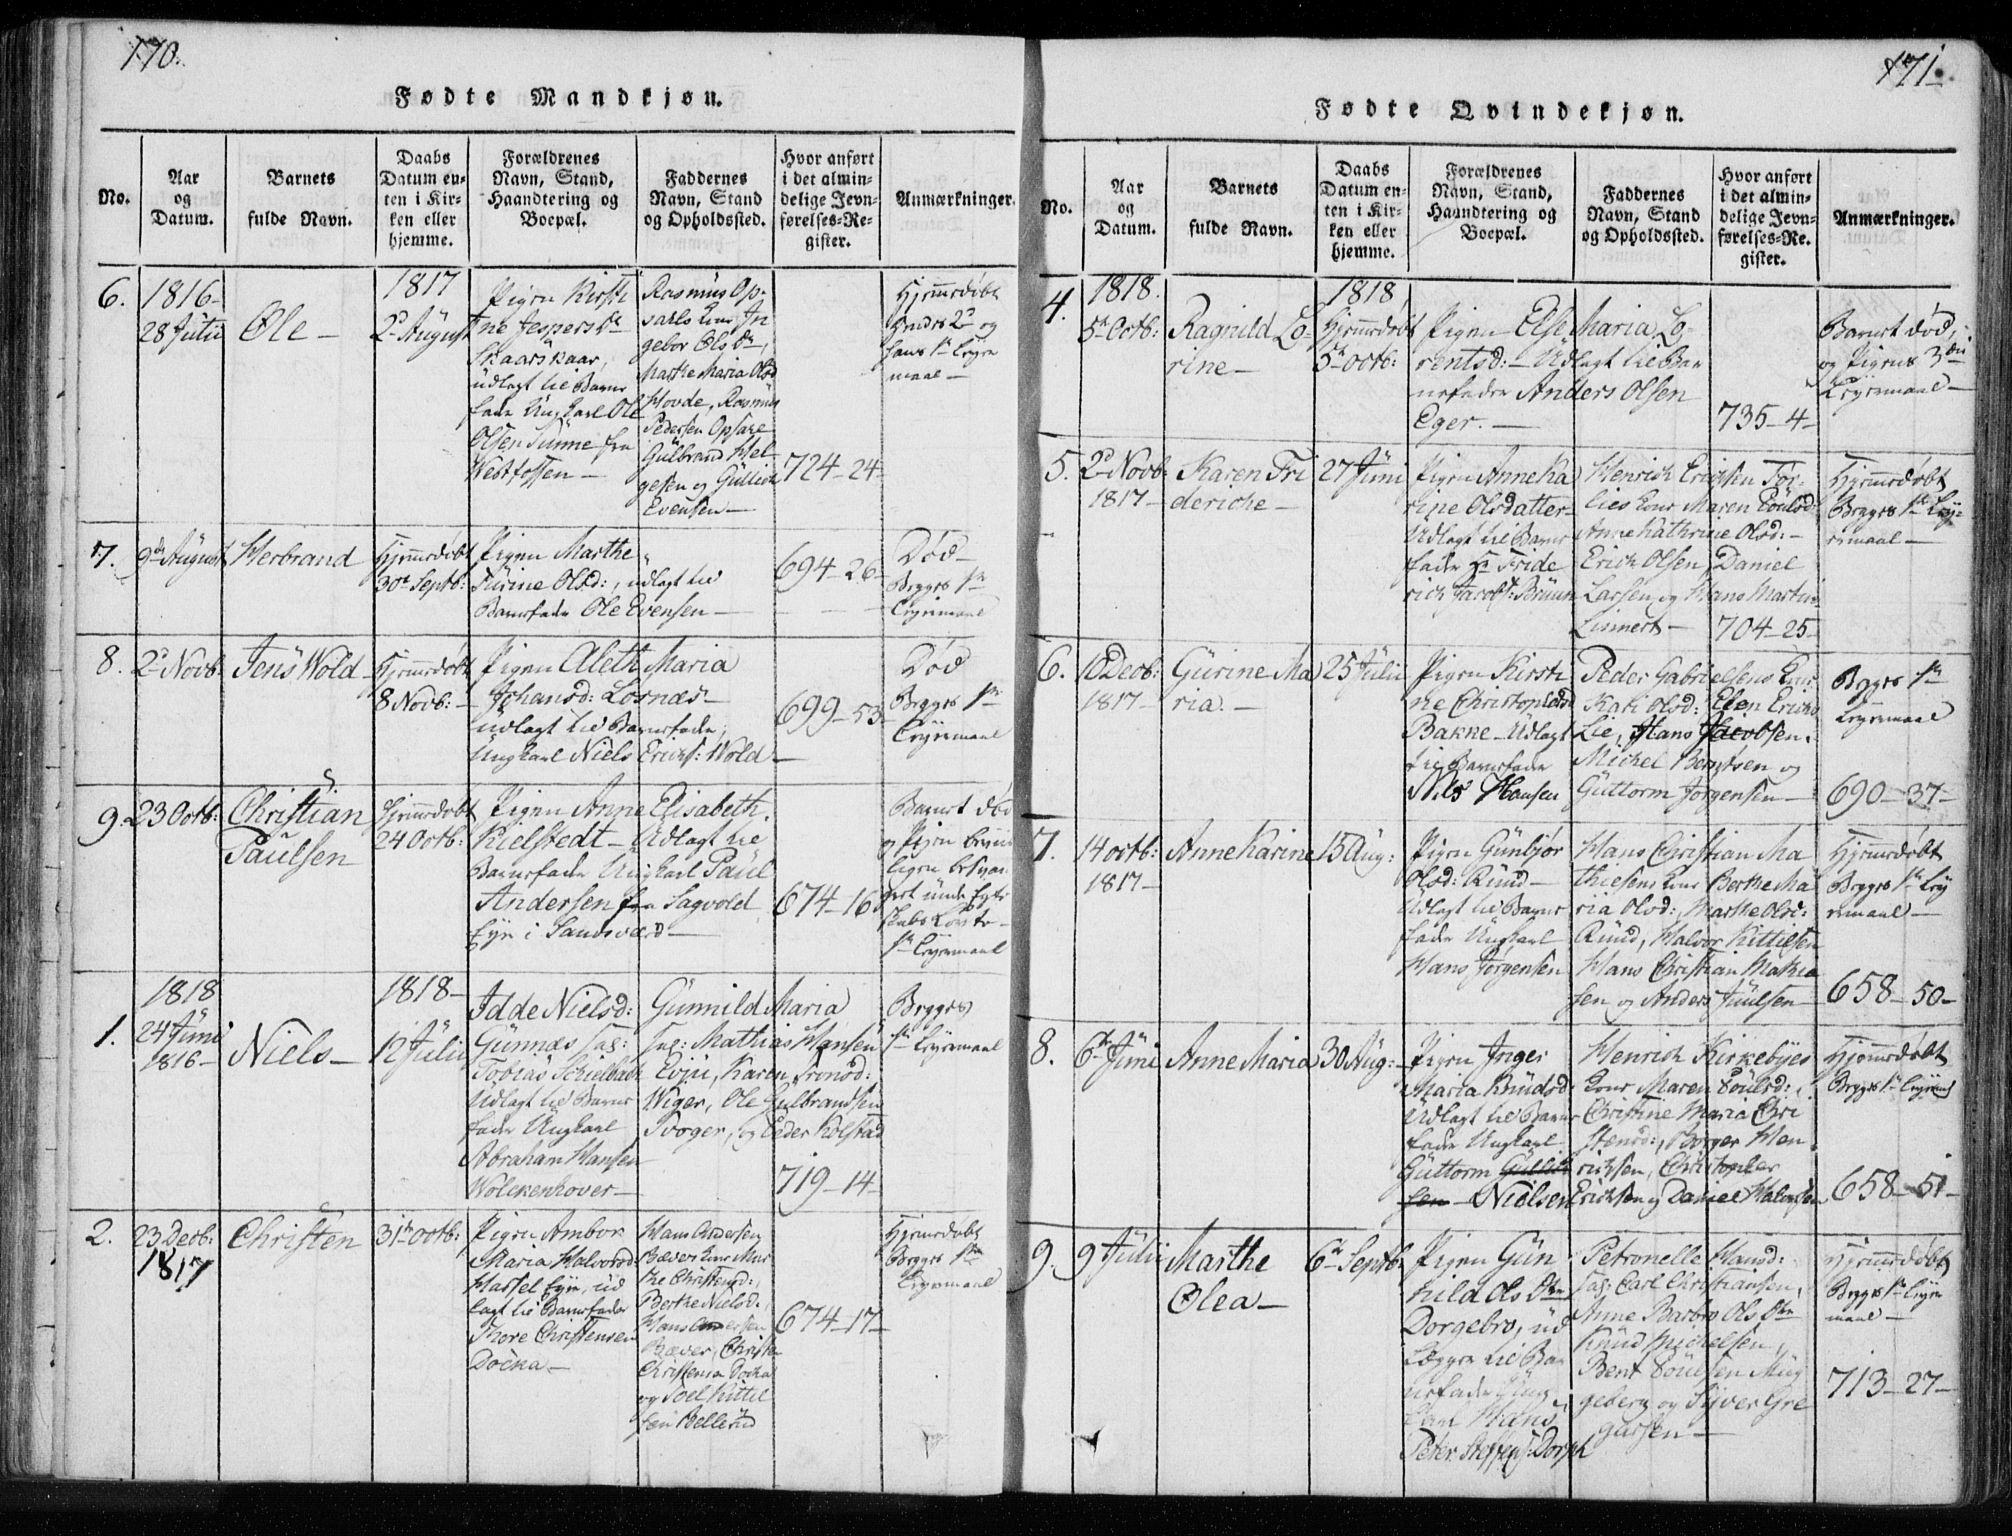 170.
Fødte Mandkjøn.
No.
Aar
og
Datum.
Barnets
fulde Navn.
Daabs
Datum en-
ten i Kir-
ken eller
hjemme.
Forældrenes
Navn, Stand,
Haandtering og
Boepæl.
Faddernes
Navn, Stand
og Opholdssted.
Hvor anført
i det almin-
delige Jevn-
førelses-Re-
gister.
Anmærkninger.
6.
1816-
28 Julii
Ole -
1817
2d August
Pigen Kirsti
ne Jespersdr
Skaarskaar,
udlagt til Barne
fader Ungkarl Ole
Olsen Tunne fra
Westfossen -
Rasmus Op-
sahls Kone In
gebor Olsdr,
Marthe Maria Olsd
Hovde, Rasmus
Pedersen Opsahl
Gulbrand Hel-
gesen og Gullich
Evensen -
724-24-
Hjemmedøbt
Hendes 2d og
hans 1te Leyer
maal -
7.
9de August
Herbrand
Hjemmedøbt
30te Septb:
Pigen Marthe
Turine Olsd:, udlagt til
Barnefader Ole Evensen -
694-26-
Død -
Begges 1te
Leyermaal
8.
2d Novb.
Jens Wold
Hjemmedøbt
8 Novb: -
Pigen Aleth Maria
Johansd: Losnæs -
udlagt til Barnefader,
Ungkarl Niels Erichs: Wold -
699-53-
Død
Begges 1te
Leyermaal
9.
23 Octb:
Christian
Paulsen
Hjemmedøbt
24 Octb:
Pigen Anne Elisabeth
Kielstedt - Udlagt til
Barnefader Ungkarl Paul
Andersen fra Sagvold
Eyer i Sandsværd -
674-16
Barnet død
og Pigen
1te Leyermaal
1818
1.
24 Juni
1816-
Niels -
1818-
12 Julii
Idde Nielsd:
Gunnæs Sag:
Tobias Schielbæk
Udlagt til Barne
fader Ungkarl
Abraham Hansen
Wolckenhover -
Gunnild Maria
Sag: Mathias Hansen
Evju, Karen Tronsd:
Wiger, Ole Gulbrandsen
Svoger, og Peder Kolstad
719-14-
Begges
1te Leyermaal
2.
23 Decb:
1817
Christen
31te Octb:
Pigen Ambor
Maria Halvorsd
Hassel Eyer, ud
lagt til Barnefader
Thore Christensen
Docka -
Hans Andersen
Bæver Kone Mar
the Christensd:,
Berthe Nielsd:,
Hans Andersen
Bæver, Christen
Christensen Docka
og Joel Kittil
sen Bellerud
674-17-
Hjemmedøbt
Begges 1te
Leyermaal
171.
Fødte Qvindekjøn.
No.
Aar
og
Datum.
Barnets
fulde Navn.
Daabs
Datum en-
ten i Kir-
ken eller
hjemme.
Forældrenes
Navn, Stand,
Haandtering og
Boepæl.
Faddernes
Navn, Stand
og Opholdssted.
Hvor anført
i det almin-
delige Jevn-
førelses-Re-
gister.
Anmærkninger.
4.
1818.
5te Octb:
Ragnild Lo-
rine -
1818
Hjemmedøbt
5te octb:
Pigen Else Maria Lo-
rentsd: - Udlagt til Bar
nefader Anders Olsen
Eger. -
735-4-
Barnet død,
og Pigens 3die
Leyermaal -
5.
2d Novb.
1817-
Karen Fri
deriche -
27 Juni
Pigen Anne Ka
rine Olsdatter -
Udlagt til Barne
fader Hr Fride
rich Jacobs: Bruun
Henrich Erichsen Før-
lies Kone Maren Poulsd:
Anne Kathrine Olsd: -
Erich Olsen, Daniel
Larsen og Hans Martin
Linnert - 704-25-
Hjemmedøbt
Begges 1te Ley-
ermaal -
6.
10 Decb:
1817-
Gurine Ma
ria. -
25 Julii
Pigen Kirsti
ne Christophersd
Bakke - Udlagt
til Barnefader
Nils Hansen
Peder Gabrielsens Kone
Kari Olsd: Elen Erichs
Lie, Hans Jacobsen.
Michel Bengtsen og
Guttorm Jorgensen -
Begges 1te
Leyermaal
690-37-
7.
14 octb:
1817-
Anne Karine
15 Aug:
Pigen Gunbjør
Olsd: Ruud -
Udlagt til Barne
fader Ungkarl
Hans Jørgensen
Hans Christian Ma
thiesens Kone Berthe Ma
ria Olsd: Marthe Olsd:
Ruud, Halvor Kittilsen
Hans Christian Mathia
sen og Anders Juulsen -
Hjemmedøbt
Begges 1te Ley
ermaal -
658-50-
8.
6te Juni
Anne Maria
30 Aug:
Pigen Inger
Maria Knudsd:
Udlagt til Barne
fader Ungkarl
Guttorm Gullich
sen - Nielsen
Henrich Kirkebyes
Kone Maren Poulsd:,
Christine Maria Chri
stensd:, Børger Hen
richsen, Christopher
Erichsen og Daniel Halvorsen
Hjemmedøbt
Begges 1te Leyermaal
658-51-
9.
9 Julii
Marthe
Olea -
6te Septb:
Pigen Gun
hild Olsdtr
Dorgebro, ud
lægger til Bar
nefader Ung
karl Hans
Peter Steffens: Dorph
Petronelle Hansd:
Sag: Carl Christiansen,
Anne Barbro Olsdtr
Knud Michelsen,
Bent Poulsen Mug
geberg og Syver Gre
gersen -
Hjemmedøbt
Begges 1te Leyer
maal -
713-27-